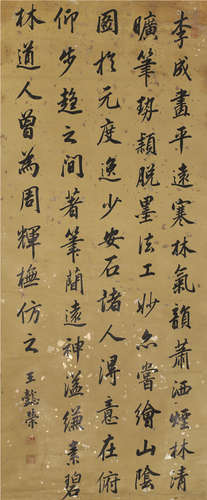 李成畫平遠寒林氣韻蕭洒煙林清
曠筆勢穎脫墨法工妙亦嘗繪山陰
圖於元度逸少安石諸人得意在俯
仰步趨之間著筆蕳遠神溢縑素碧
林道人曾為周輝橅仿之王懿榮